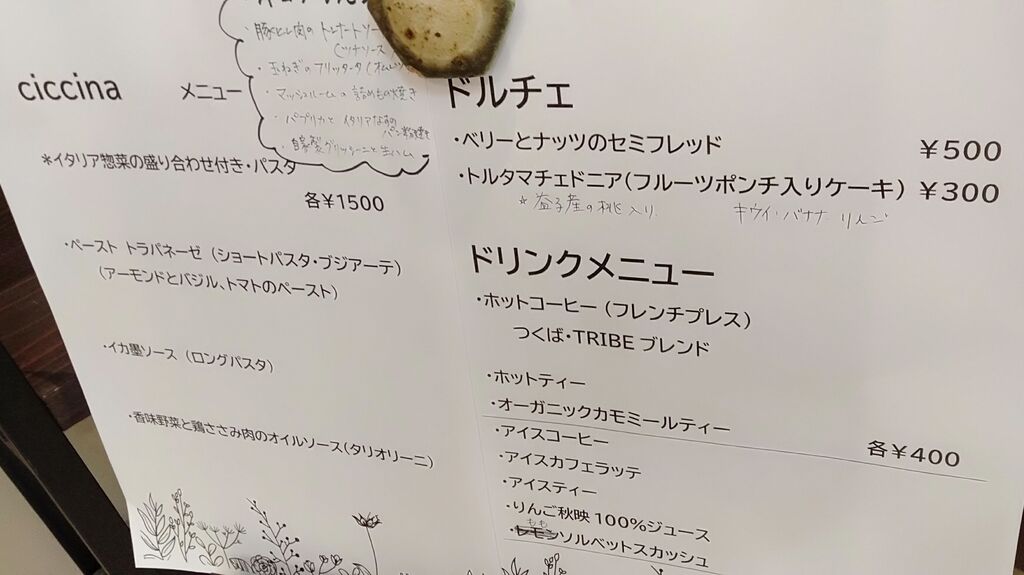 豚ヒレ肉のトンナートソー
(ツナソース
・玉ねぎのフリッタータ(オムレツ
・マッシュルームの詰めもの焼き
・パプリカとイタリアなすの
パン粉焼き
・自家製グリッシーニと生ハム
ciccina メニュー
*イタリア惣菜の盛り合わせ付き・パスタ
各¥1500
・ペースト トラパネーゼ (ショートパスタ・ブジアーテ)
(アーモンドとバジル、トマトのペースト)
・イカ墨ソース (ロングパスタ)
・香味野菜と鶏ささみ肉のオイルソース(タリオリーニ)
ドルチェ
・ベリーとナッツのセミフレッド ¥500
・トルタマチェドニア(フルーツポンチ入りケーキ) ¥300
*益子産の桃入り キウイ・バナナ りんご
ドリンクメニュー
・ホットコーヒー (フレンチプレス)
つくば・TRIBE ブレンド
・ホットティー
・オーガニックカモミールティー
各¥400
・アイスコーヒー
・アイスカフェラッテ
・アイスティー
・りんご秋映 100%ジュース
もも
・レモンソルベットスカッシュ